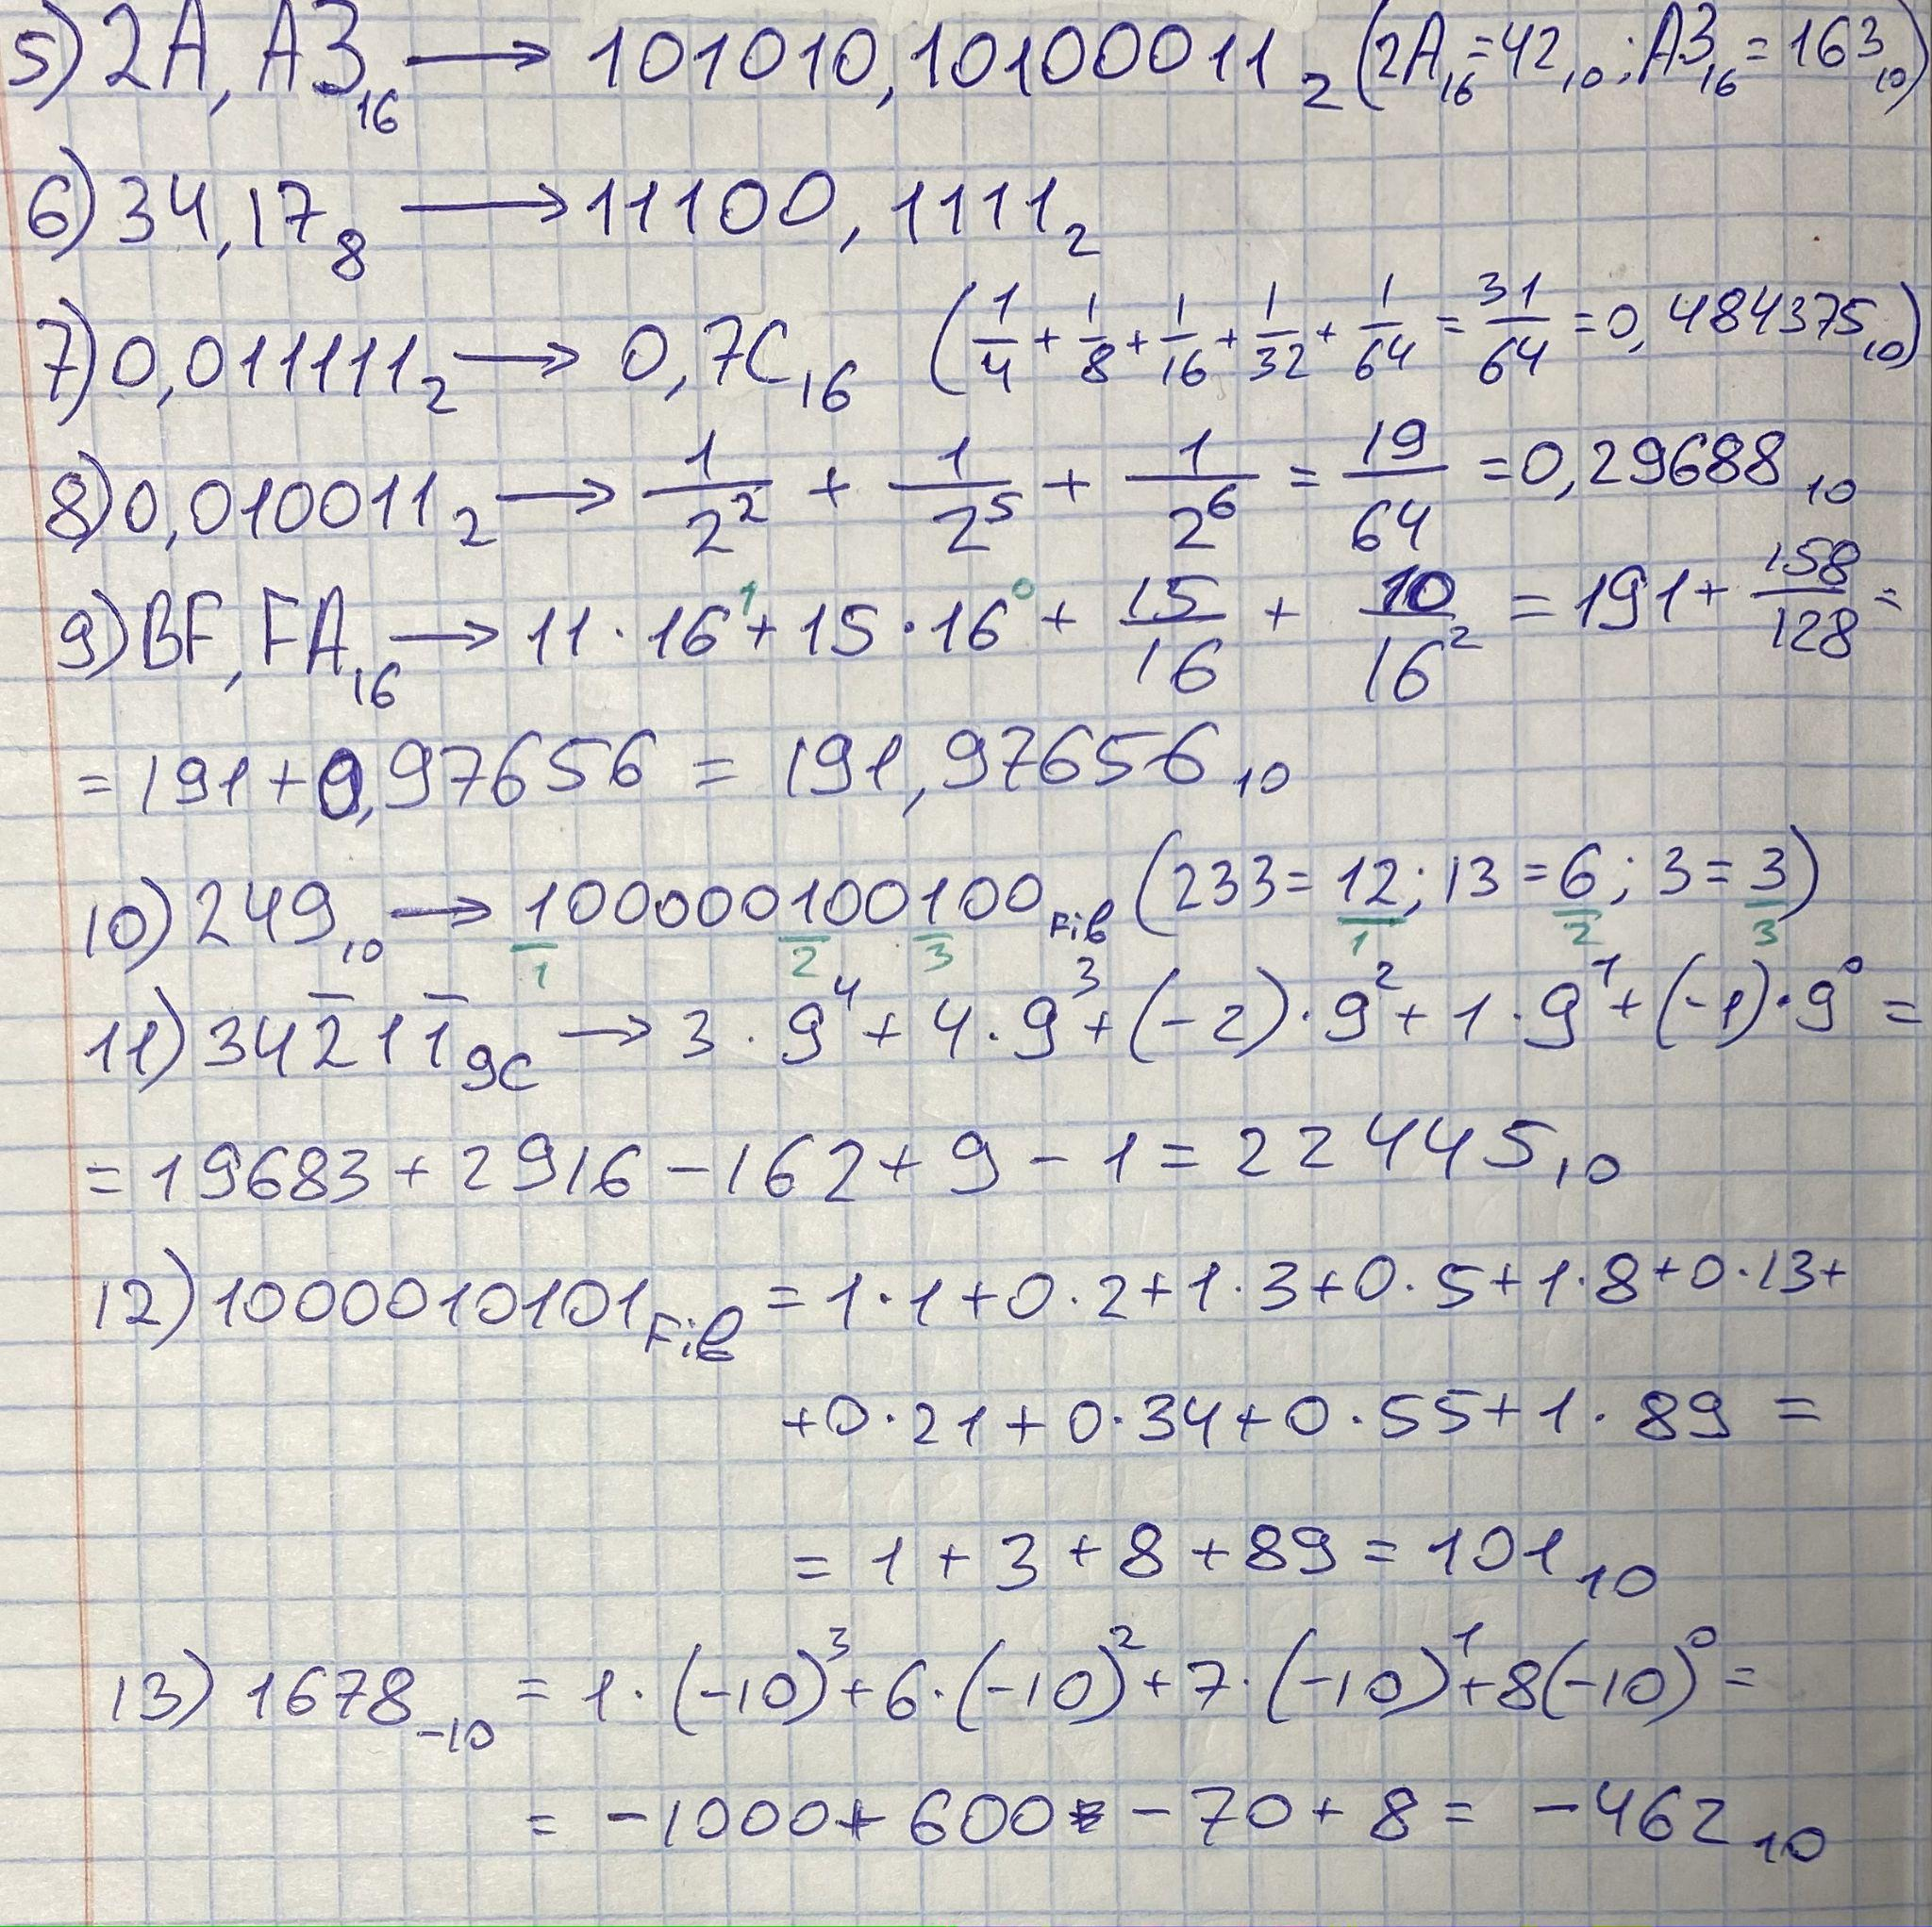 5) 2A,A3₁₆ → 101010,10100011₂ (2A₁₆=42₁₀; A3₁₆=163₁₀)
6) 34,17₈ → 11100,1111₂
7) 0,011111₂ → 0,7C₁₆ (1/4 + 1/8 + 1/16 + 1/32 + 1/64 = 31/64 = 0,484375₁₀)
8) 0,010011₂ → 1/2² + 1/2⁵ + 1/2⁶ = 19/64 = 0,29688₁₀
9) BF,FA₁₆ → 11·16¹ + 15·16⁰ + 15/16 + 10/16² = 191 + 158/128 =
= 191 + 0,97656 = 191,97656₁₀
10) 249₁₀ → 100000100100 Fib (233 = 12; 13 = 6; 3 = 3)
1 2 3 1 2 3
11) 342̅11̅ 9C → 3·9⁴ + 4·9³ + (-2)·9² + 1·9¹ + (-1)·9⁰ =
= 19683 + 2916 - 162 + 9 - 1 = 22445₁₀
12) 1000010101 Fib = 1·1 + 0·2 + 1·3 + 0·5 + 1·8 + 0·13 +
+ 0·21 + 0·34 + 0·55 + 1·89 =
= 1 + 3 + 8 + 89 = 101₁₀
13) 1678₋₁₀ = 1·(-10)³ + 6·(-10)² + 7·(-10)¹ + 8(-10)⁰ =
= -1000 + 600 - 70 + 8 = -462₁₀